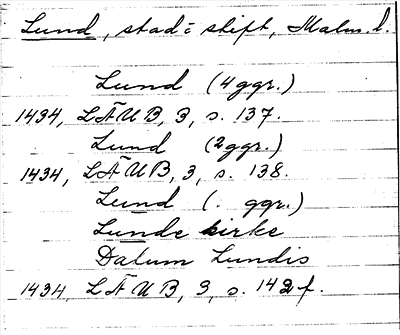 Lund, stad i stift, Malm. l.
Lund (4 ggr.)
1434, LÄUB, 3, s. 137.
Lund (2 ggr.)
1434, LÄUB, 3, s. 138.
Lund (. ggr.)
Lunde kirke
Datum Lundis
1434, LÄUB, 3, s. 142 f.